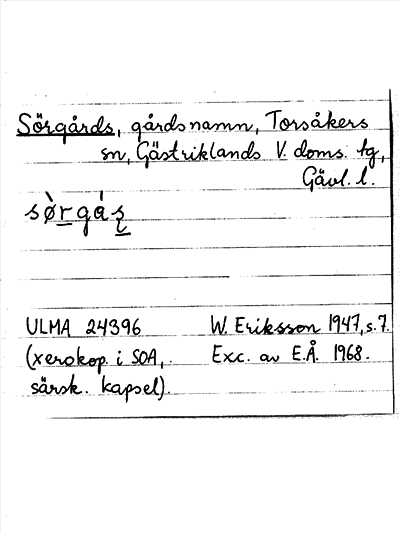 Sörgårds, gårdsnamn, Torsåkers
sn, Gästriklands V. doms. tg,
Gävl. l.
sø̀rgá̊ʂ
ULMA 24396
(xerokop. i SOA,
särsk. kapsel).
W. Eriksson 1947, s. 7.
Exc. av E.Å. 1968.